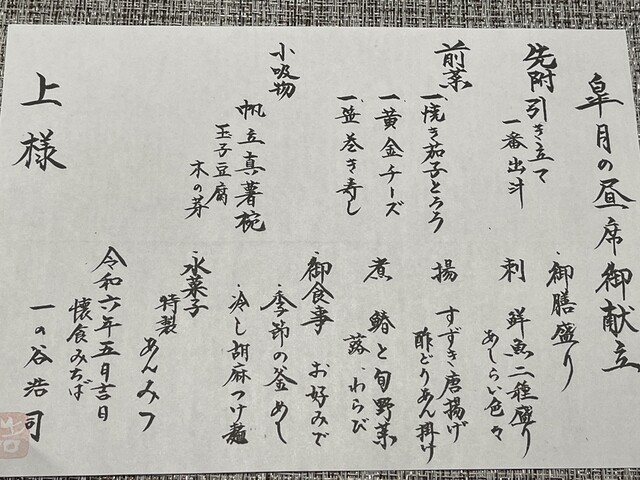 皐月の昼席御献立
先附 引き立て
一番出斗
前菜
一焼き茄子とろろ
一黄金チーズ
一笹巻き寿し
小吸物
帆立真薯椀
玉子豆腐
木の芽
・御膳盛り
刺 鮮魚二種盛り
あしらい色々
揚 すずき唐揚げ
酢どりあん掛け
煮 鰆と旬野菜
蕗、わらび
御食事 お好みで
・季節の釜めし
・冷し胡麻つけ麺
水菓子
特製 あんみつ
令和六年五月吉日
懐食みちば
一の谷浩司
上様